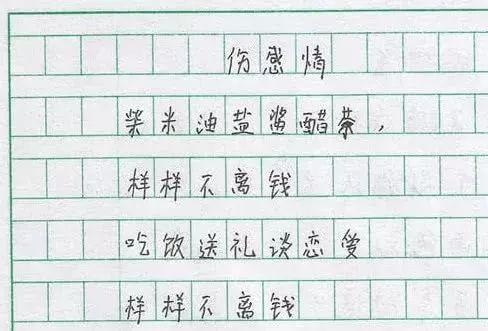 伤感情
柴米油盐酱醋茶，
样样不离钱
吃饭送礼谈恋爱
样样不离钱